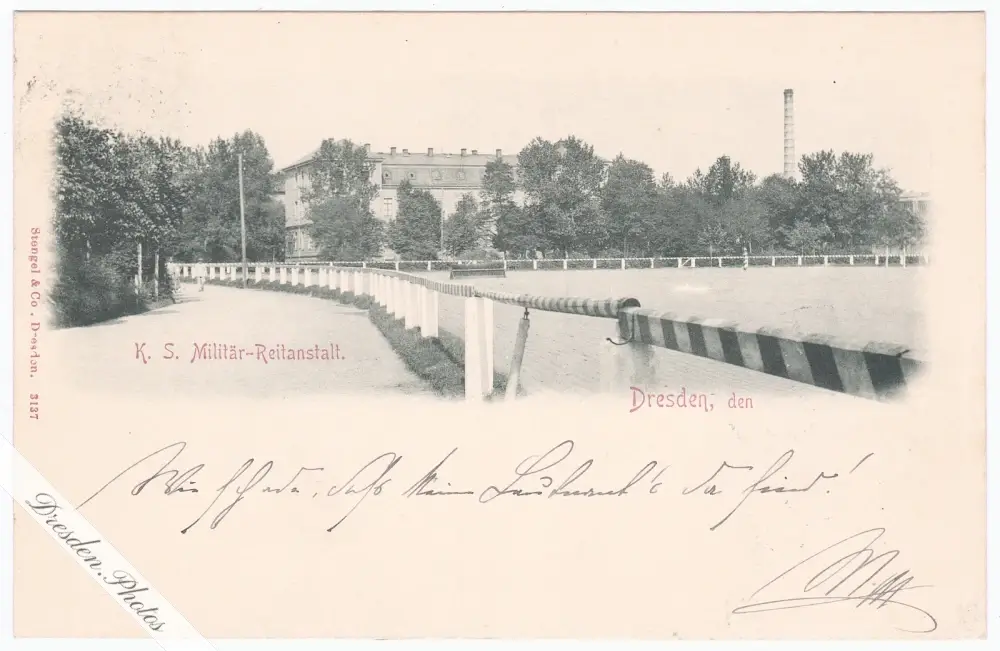 K. S. Militär-Reitanstalt.
Dresden, den
Stengel & Co., Dresden. 3137
Wie schade, daß keine Leutnant's da sind!
Dresden.Photos